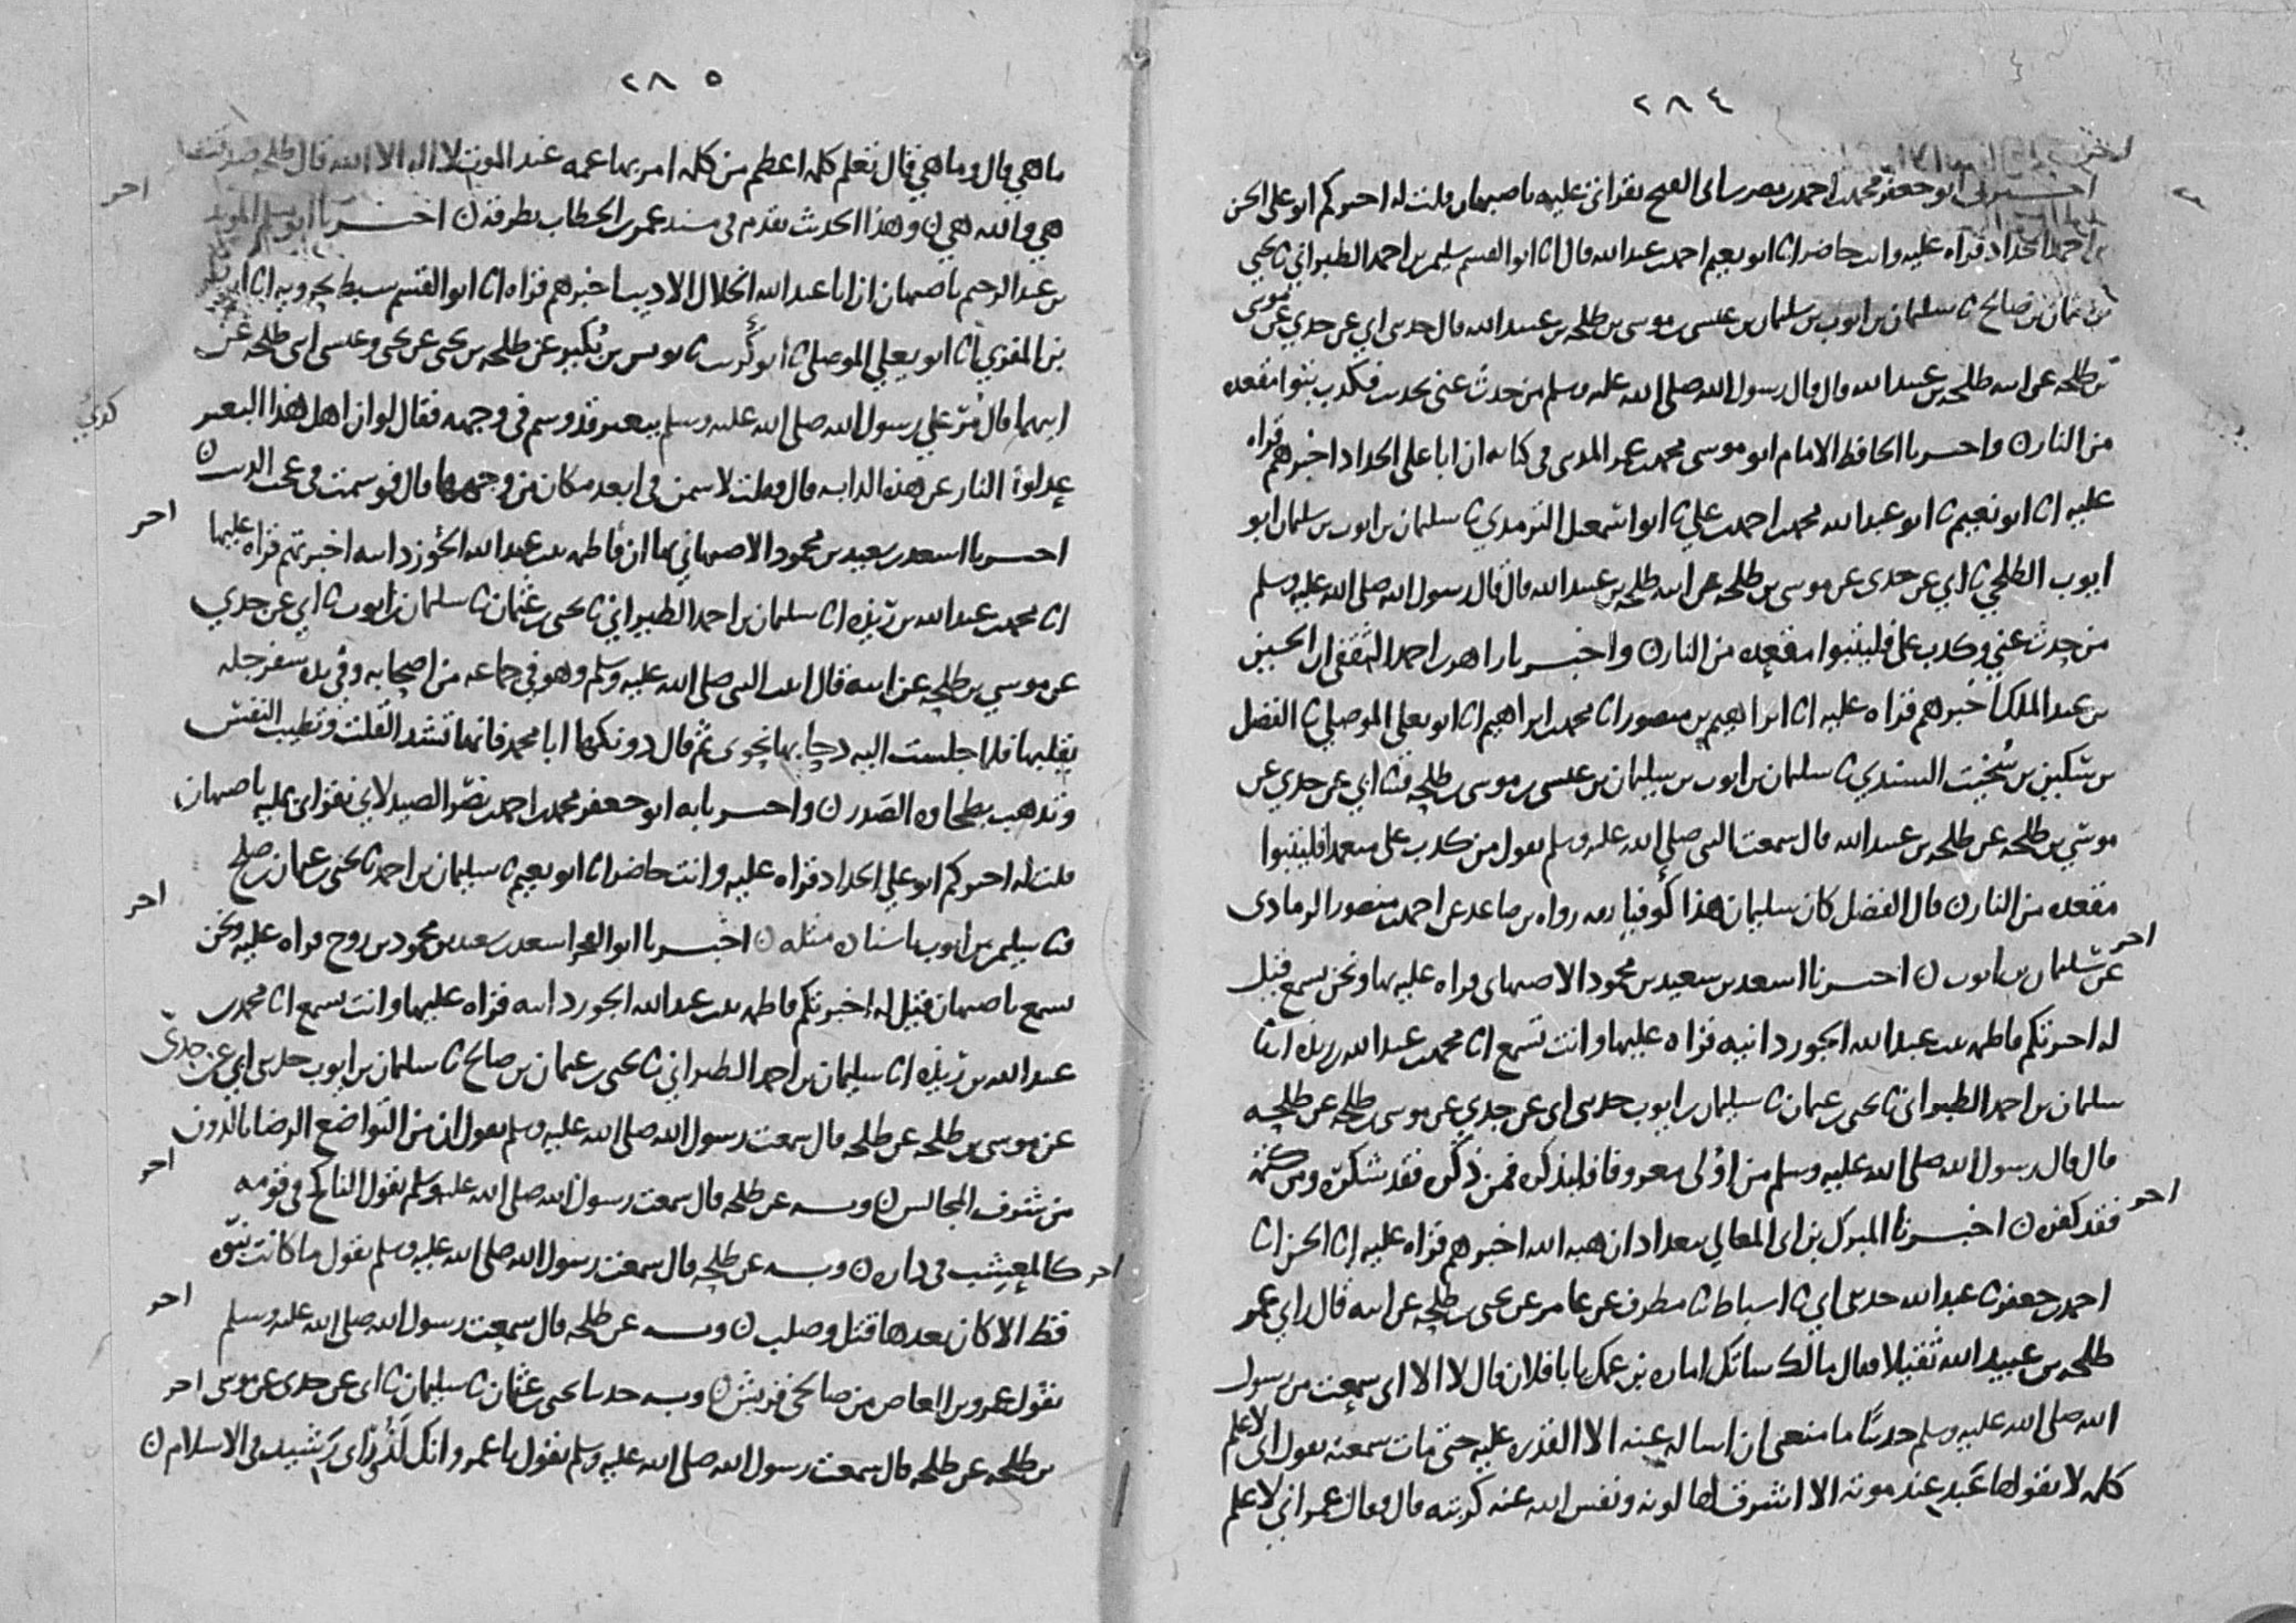 ٢٨٤
اخبرنا ابو جعفر محمد بن احمد بن نصر بن ابي الفتح بقراتي عليه باصبهان قلت له اخبركم ابو علي الحسن
بن احمد الحداد قراه عليه وانت حاضر انا ابو نعيم احمد بن عبد الله قال انا ابو القسم سليمن بن احمد الطبراني نا يحيى
بن عثمان بن صالح نا سليمان بن ايوب بن سليمان بن عيسى بن موسى بن طلحه بن عبيد الله قال حدثني ابي عن جدي عن موسى
بن طلحه عن ابيه طلحه بن عبيد الله قال قال رسول الله صلى الله عليه وسلم من حدث عني بحديث فكذب يتبوا مقعده
من النار ن واخبرنا الحافظ الامام ابو موسى محمد بن عمر المديني في كتابه ان ابا علي الحداد اخبرهم قراه
عليه انا ابو نعيم نا ابو عبد الله محمد بن احمد بن علي نا ابو اسمعيل الترمذي نا سليمان بن ايوب بن سليمان ابو
ايوب الطلحي نا ابي عن جدي عن موسى بن طلحه عن ابيه طلحه بن عبيد الله قال قال رسول الله صلى الله عليه وسلم
من حدث عني وكذب علي فليتبوا مقعده من النار ن واخبرنا زاهر بن احمد الثقفي ان الحسين
بن عبد الملك اخبرهم قراه عليه انا ابراهيم بن منصور انا محمد بن ابراهيم انا ابو يعلى الموصلي نا الفضل
بن سكين بن سخيت السندي نا سليمان بن ايوب بن سليمان بن عيسى بن موسى بن طلحه ثنا ابي عن جدي عن
موسى بن طلحه عن طلحه بن عبيد الله قال سمعت النبي صلى الله عليه وسلم يقول من كذب علي متعمدا فليتبوا
مقعده من النار ن قال الفضل كان سليمان هذا كوفيا رواه بن صاعد عن احمد بن منصور الرمادي
عن سليمان بن ايوب ن اخبرنا اسعد بن سعيد بن محمود الاصبهاني قراه عليه بها ونحن نسمع قيل
له اخبرتكم فاطمه بنت عبد الله الجوزدانيه قراه عليها وانت تسمع انا محمد بن عبد الله بن ريذه انا
سليمان بن احمد الطبراني نا يحيى بن عثمان نا سليمان بن ايوب حدثني ابي عن جدي عن موسى بن طلحه عن طلحه
قال قال رسول الله صلى الله عليه وسلم من اولى معروفا فليذكره فمن ذكره فقد شكره ومن كتمه
فقد كفره ن اخبرنا المبارك بن ابي المعالي ببغداد ان هبه الله اخبرهم قراه عليه انا الحسن انا
احمد بن جعفر نا عبد الله حدثني ابي نا اسباط نا مطرف عن عامر عن يحيى بن طلحه عن ابيه قال راى عمر
طلحه بن عبيد الله ثقيلا فقال مالك ساتك اماره بن عمك يا با فلان قال لا الا اني سمعت من رسول
الله صلى الله عليه وسلم حديثا ما منعني ان اساله عنه الا القدره عليه حتى مات سمعته يقول اني لاعلم
كلمه لا يقولها عبد عند موته الا اشرق لها لونه ونفس الله عنه كربته قال فقال عمر اني لاعلم
٢٨٥
ما هي قال وما هي قال تعلم كلمه اعظم من كلمه امر بها عمه عند الموت لا اله الا الله قال طلحه صدقت
هي والله هي ن وهذا الحديث تقدم في مسند عمر بن الخطاب بطرقه ن اخبرنا ابو مسلم المويد
بن عبد الرحيم باصبهان ان ابا عبد الله الخلال الاديب اخبرهم قراه انا ابو القسم سبط بحرويه انا ابو
بن المقري انا ابو يعلى الموصلي نا ابو كريب نا يونس بن بكير عن طلحه بن يحيى عن يحيى وعيسى ابني طلحه عن
ابيهما قال مر على رسول الله صلى الله عليه وسلم ببعير قد وسم في وجهه فقال لو ان اهل هذا البعير
عدلوا النار عن هذه الدابه قال فقلت لاسمن في ابعد مكان من وجهها قال فوسمت في عجب الذنب ن
اخبرنا اسعد بن سعيد بن محمود الاصبهاني بها ان فاطمه بنت عبد الله الجوزدانيه اخبرتهم قراه عليها
انا محمد بن عبد الله بن ريذه انا سليمان بن احمد الطبراني نا يحيى بن عثمان نا سليمان بن ايوب نا ابي عن جدي
عن موسى بن طلحه عن ابيه قال اتيت النبي صلى الله عليه وسلم وهو في جماعه من اصحابه وفي يده سفرجله
يقلبها فلما جلست اليه دحا بها نحوي ثم قال دونكها ابا محمد فانها تشد القلب وتطيب النفس
وتذهب بطخاوه الصدر ن واخبرنا به ابو جعفر محمد بن احمد بن نصر الصيدلاني بقراتي عليه باصبهان
قلت له اخبركم ابو علي الحداد قراه عليه وانت حاضر انا ابو نعيم نا سليمان بن احمد نا يحيى بن عثمان بن صلح
ثنا سليمن بن ايوب باسناده مثله ن اخبرنا ابو الفخر اسعد بن سعيد بن محمود بن روح قراه عليه ونحن
نسمع باصبهان قيل له اخبرتكم فاطمه بنت عبد الله الجوزدانيه قراه عليها وانت تسمع انا محمد بن
عبد الله بن ريذه انا سليمان بن احمد الطبراني نا يحيى بن عثمان بن صالح نا سليمان بن ايوب حدثني ابي عن جدي
عن موسى بن طلحه عن طلحه قال سمعت رسول الله صلى الله عليه وسلم يقول ان من التواضع الرضا بالدون
من شرف المجالس ن وبه عن طلحه قال سمعت رسول الله صلى الله عليه وسلم يقول الناكح في قومه
كالمعشب في داره ن وبه عن طلحه قال سمعت رسول الله صلى الله عليه وسلم يقول ما كانت نبوه
قط الا كان بعدها قتل وصلب ن وبه عن طلحه قال سمعت رسول الله صلى الله عليه وسلم
يقول عمرو بن العاص من صالحي قريش ن وبه حدثنا يحيى بن عثمان نا سليمان نا ابي عن جدي عن موسى
بن طلحه عن طلحه قال سمعت رسول الله صلى الله عليه وسلم يقول يا عمرو انك لذو راي رشيد في الاسلام ن